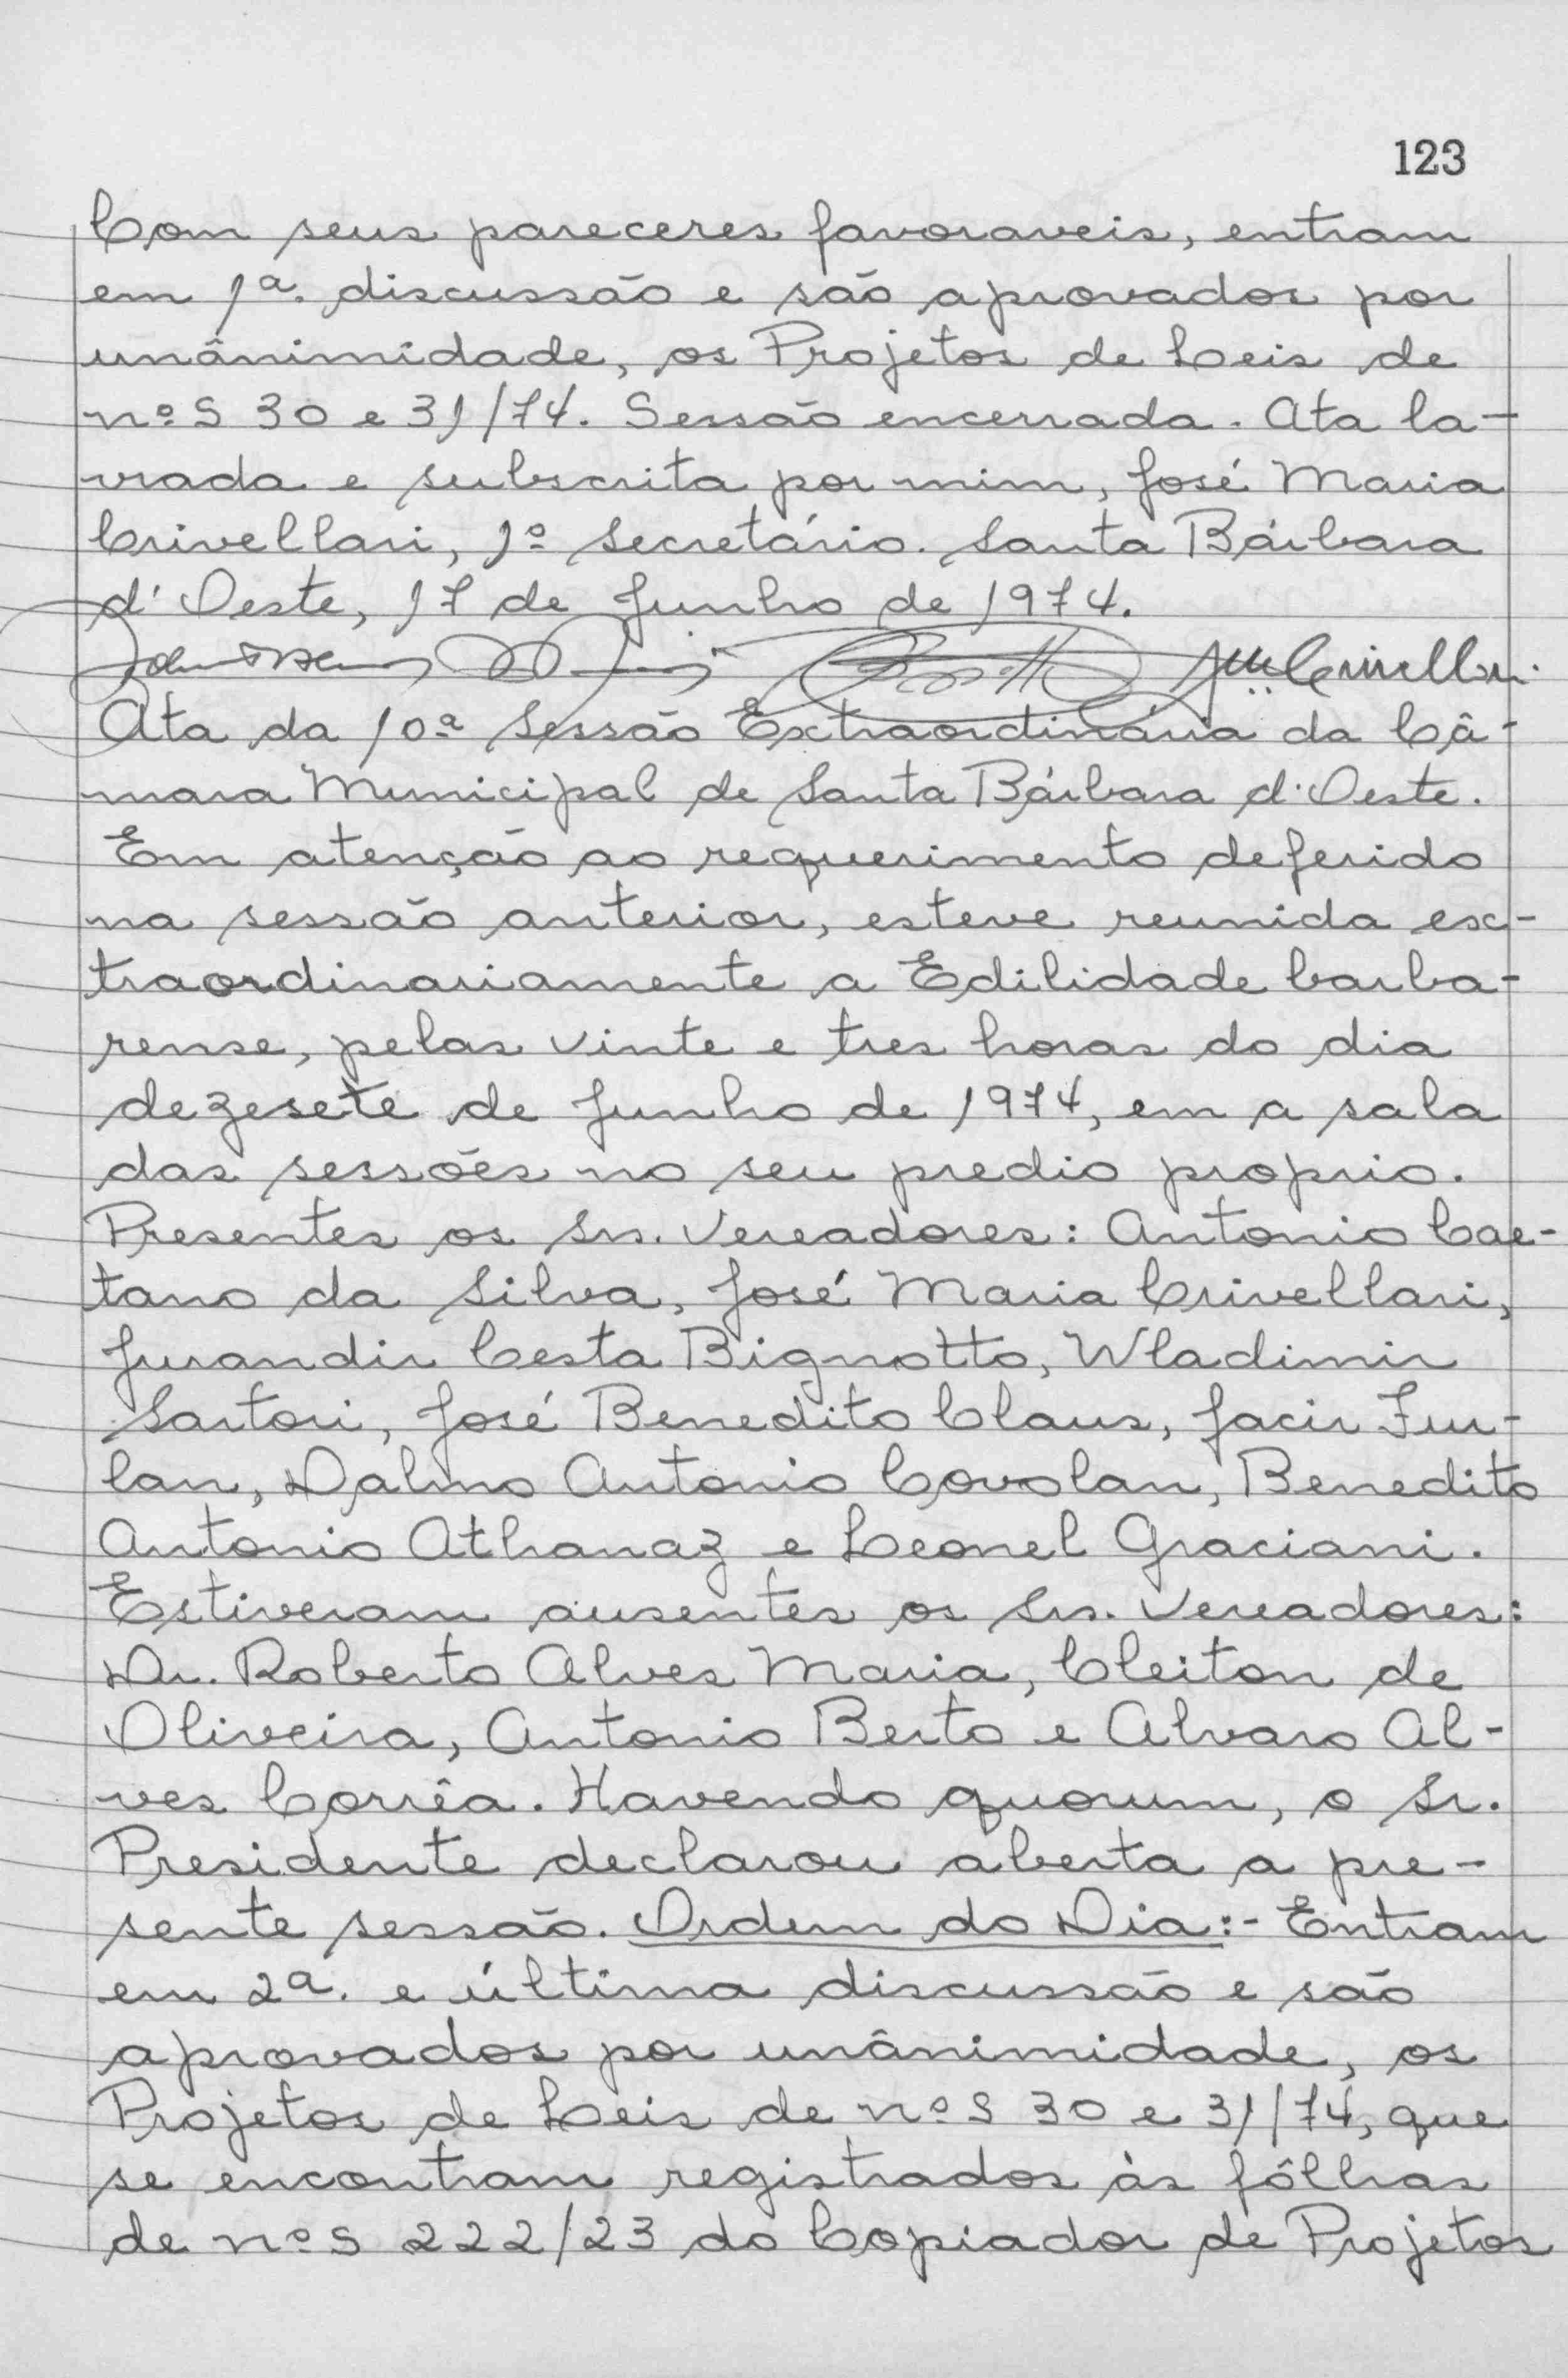 123
Com seus pareceres favoraveis, entram
em 1ª. discussão e são aprovados por
unânimidade, os Projetos de Leis de
nº.s 30 e 31/74. Sessão encerrada. Ata la-
vrada e subscrita por mim, José Maria
Crivellari, 1º secretário. Santa Bárbara
d'Oeste, 17 de Junho de 1974.
Ata da 10ª Sessão Extraordinária da Câ-
mara Municipal de Santa Bárbara d'Oeste.
Em atenção ao requerimento deferido
na sessão anterior, esteve reunida ex-
traordinariamente a Edilidade barba-
rense, pelas vinte e tres horas do dia
dezesete de Junho de 1974, em a sala
das sessões no seu predio proprio.
Presentes os Srs. Vereadores: Antonio Cae-
tano da Silva, José Maria Crivellari,
Jurandir Cesta Bignotto, Wladimir
Sartori, José Benedito Claus, Jacir Fur-
lan, Dalmo Antonio Covolan, Benedito
Antonio Athanaz e Leonel Graciani.
Estiveram ausentes os Srs. Vereadores:
Dr. Roberto Alves Maria, Cleiton de
Oliveira, Antonio Berto e Alvaro Al-
ves Corrêa. Havendo quorum, o Sr.
Presidente declarou aberta a pre-
sente sessão. Ordem do Dia:- Entram
em 2ª. e última discussão e são
aprovados por unânimidade, os
Projetos de Leis de nº.s 30 e 31/74, que
se encontram registrados às fôlhas
de nº.s 222/23 do Copiador de Projetos